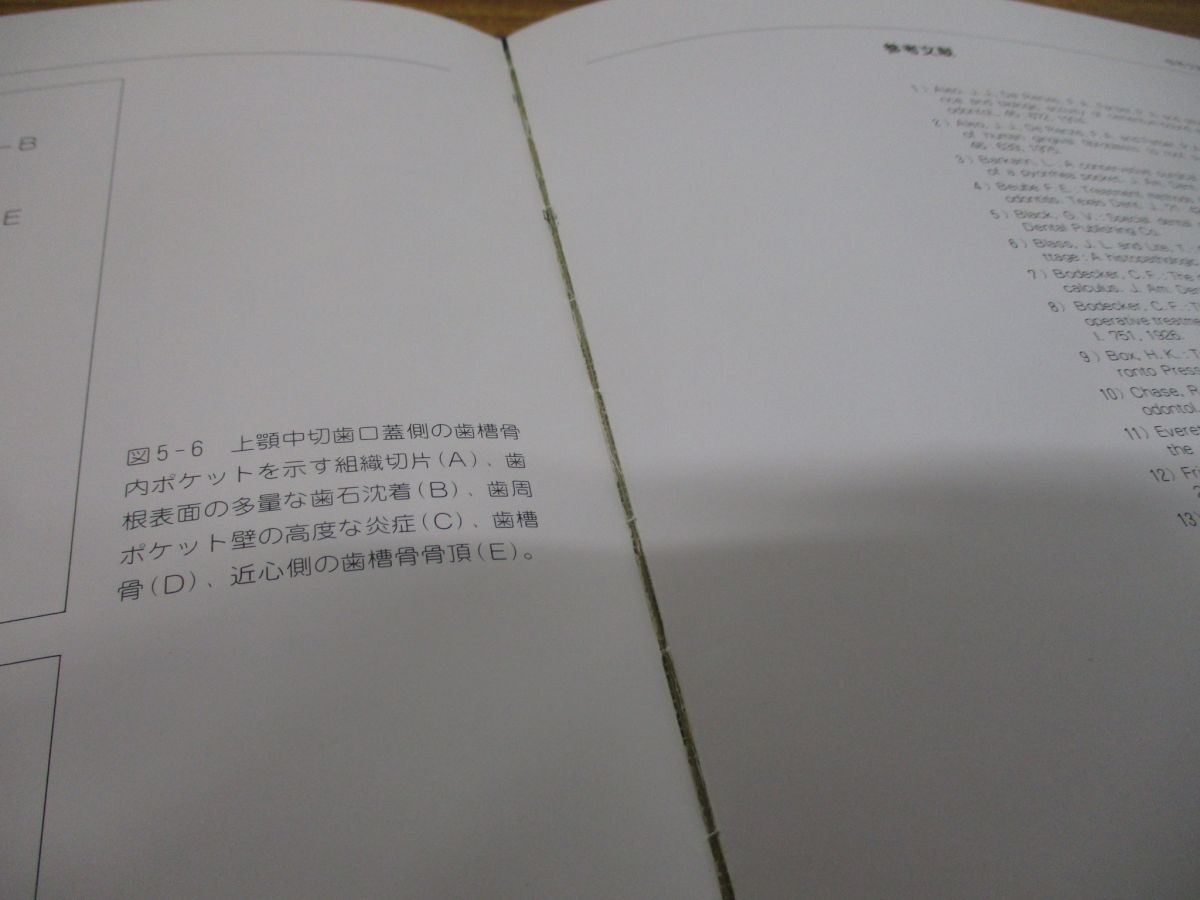 B
E
図5-6 上顎中切歯口蓋側の歯槽骨
内ポケットを示す組織切片(A)、歯
根表面の多量な歯石沈着(B)、歯周
ポケット壁の高度な炎症(C)、歯槽
骨(D)、近心側の歯槽骨骨頂(E)。
参考文献
1)
2)
of human gingival fibroblasts
46 : 639, 1975.
3) Barkann, L. : A conservative surgical
of a pyorrhea pocket. J. Am. Den
4) Beube F. E. : Treatment methods
odontitis. Texas Dent. J.
5) Black, G. V. : Special dental
Dental Publishing Co.
6) Blass, J. L. and Lite, T. :
ttage : A histopathologic
7) Bodecker, C. F. : The
calculus. J. Am. Den
8) Bodecker, C. F. : T
operative treatme
1. 751, 1926.
9) Box, H. K. : T
ronto Press
10) Chase, R
odontol.
11) Evere
the
12) Fri
13)